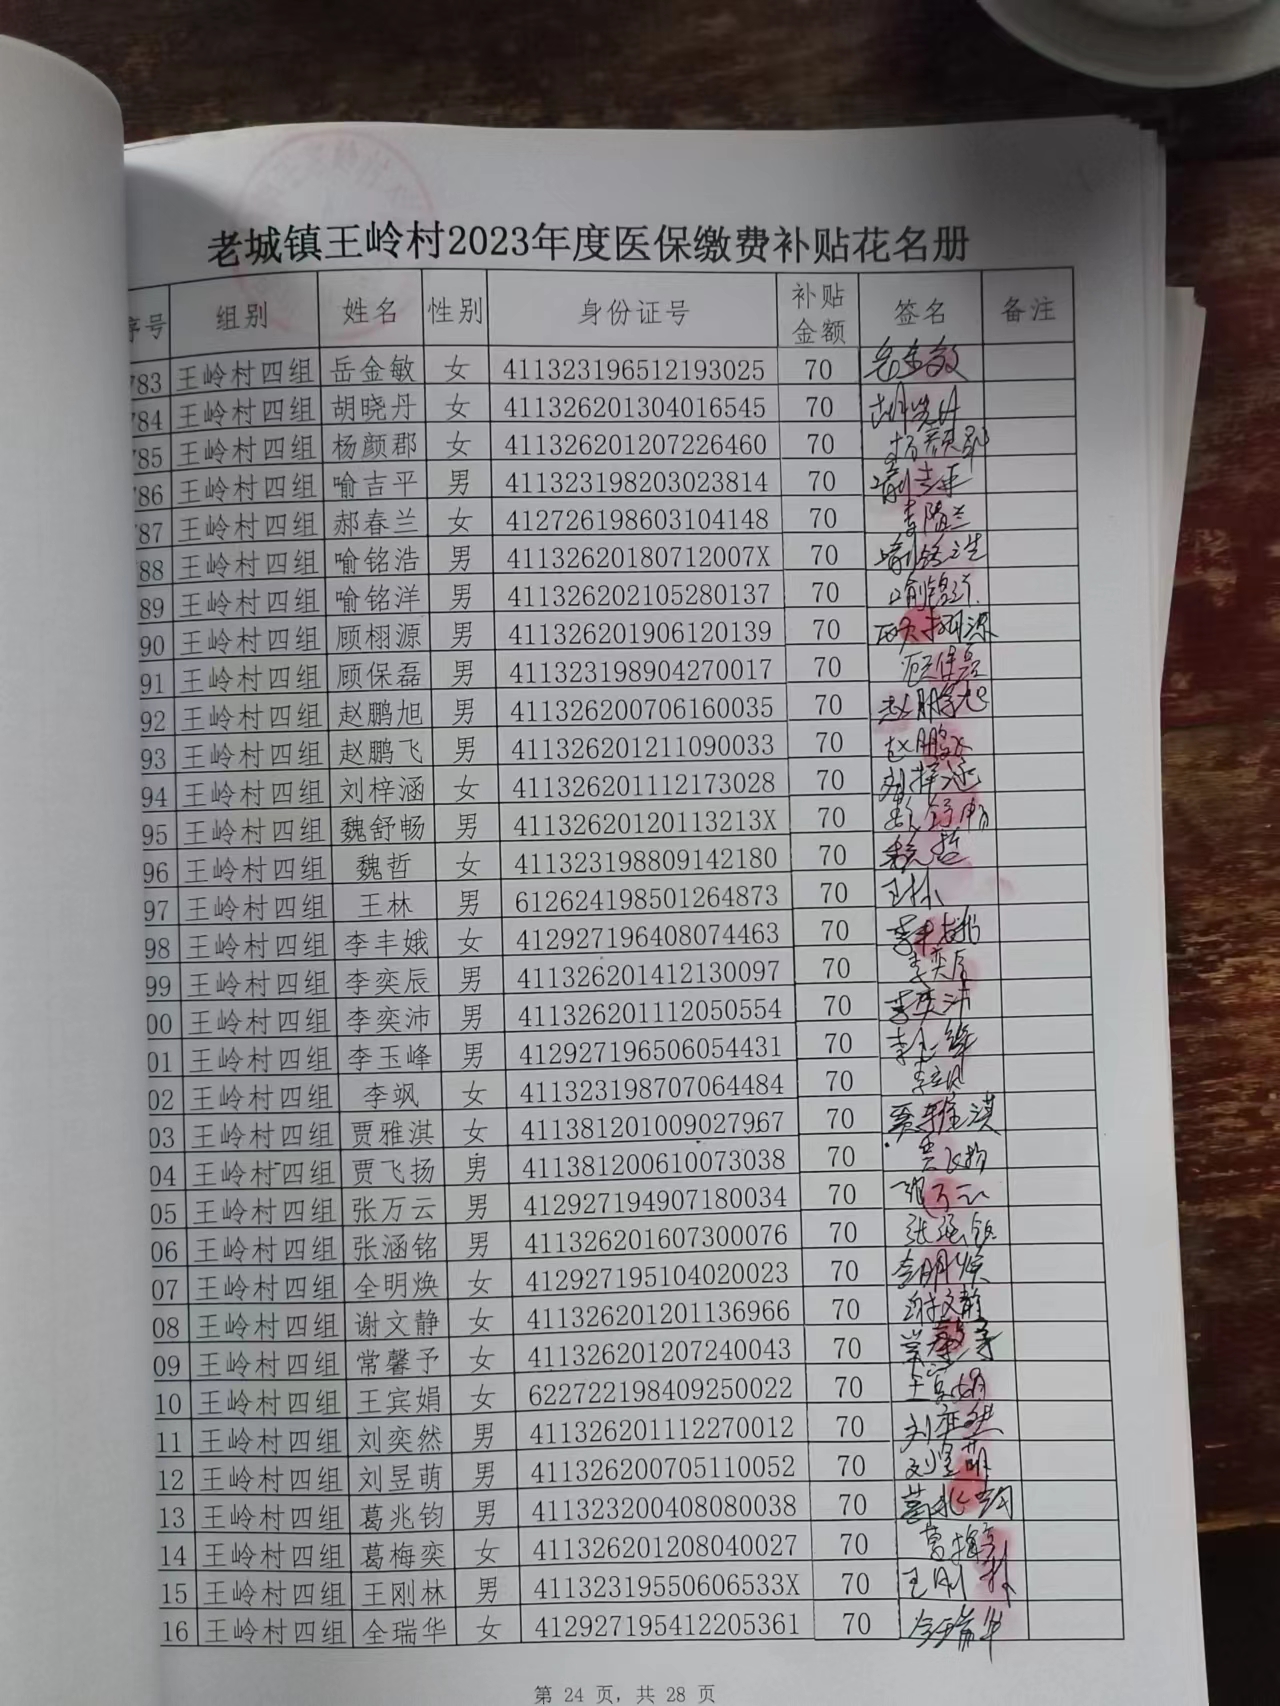 老城镇王岭村2023年度医保缴费补贴花名册
序号 组别 姓名 性别 身份证号 补贴金额 签名 备注
783 王岭村四组 岳金敏 女 411323196512193025 70
784 王岭村四组 胡晓丹 女 411326201304016545 70
785 王岭村四组 杨颜郡 女 411326201207226460 70 杨颜郡
786 王岭村四组 喻吉平 男 411323198203023814 70 喻吉平
787 王岭村四组 郝春兰 女 412726198603104148 70
88 王岭村四组 喻铭浩 男 41132620180712007X 70 喻铭浩
89 王岭村四组 喻铭洋 男 411326202105280137 70
90 王岭村四组 顾栩源 男 411326201906120139 70 顾栩源
91 王岭村四组 顾保磊 男 411323198904270017 70 顾保磊
92 王岭村四组 赵鹏旭 男 411326200706160035 70 赵鹏旭
93 王岭村四组 赵鹏飞 男 411326201211090033 70 赵鹏飞
94 王岭村四组 刘梓涵 女 411326201112173028 70 刘梓涵
95 王岭村四组 魏舒畅 男 41132620120113213X 70
96 王岭村四组 魏哲 女 411323198809142180 70 魏哲
97 王岭村四组 王林 男 612624198501264873 70 王林
98 王岭村四组 李丰娥 女 412927196408074463 70 李丰娥
99 王岭村四组 李奕辰 男 411326201412130097 70 李奕辰
00 王岭村四组 李奕沛 男 411326201112050554 70 李奕沛
01 王岭村四组 李玉峰 男 412927196506054431 70
02 王岭村四组 李飒 女 411323198707064484 70 李飒
03 王岭村四组 贾雅淇 女 411381201009027967 70 贾雅淇
04 王岭村四组 贾飞扬 男 411381200610073038 70 贾飞扬
05 王岭村四组 张万云 男 412927194907180034 70 张万云
06 王岭村四组 张涵铭 男 411326201607300076 70 张涵铭
07 王岭村四组 全明焕 女 412927195104020023 70 全明焕
08 王岭村四组 谢文静 女 411326201201136966 70 谢文静
09 王岭村四组 常馨予 女 411326201207240043 70 常馨予
10 王岭村四组 王宾娟 女 622722198409250022 70 王宾娟
11 王岭村四组 刘奕然 男 411326201112270012 70 刘奕然
12 王岭村四组 刘昱萌 男 411326200705110052 70 刘昱萌
13 王岭村四组 葛兆钧 男 411323200408080038 70
14 王岭村四组 葛梅奕 女 411326201208040027 70 葛梅奕
15 王岭村四组 王刚林 男 41132319550606533X 70 王刚林
16 王岭村四组 全瑞华 女 412927195412205361 70 全瑞华
第 24 页，共 28 页